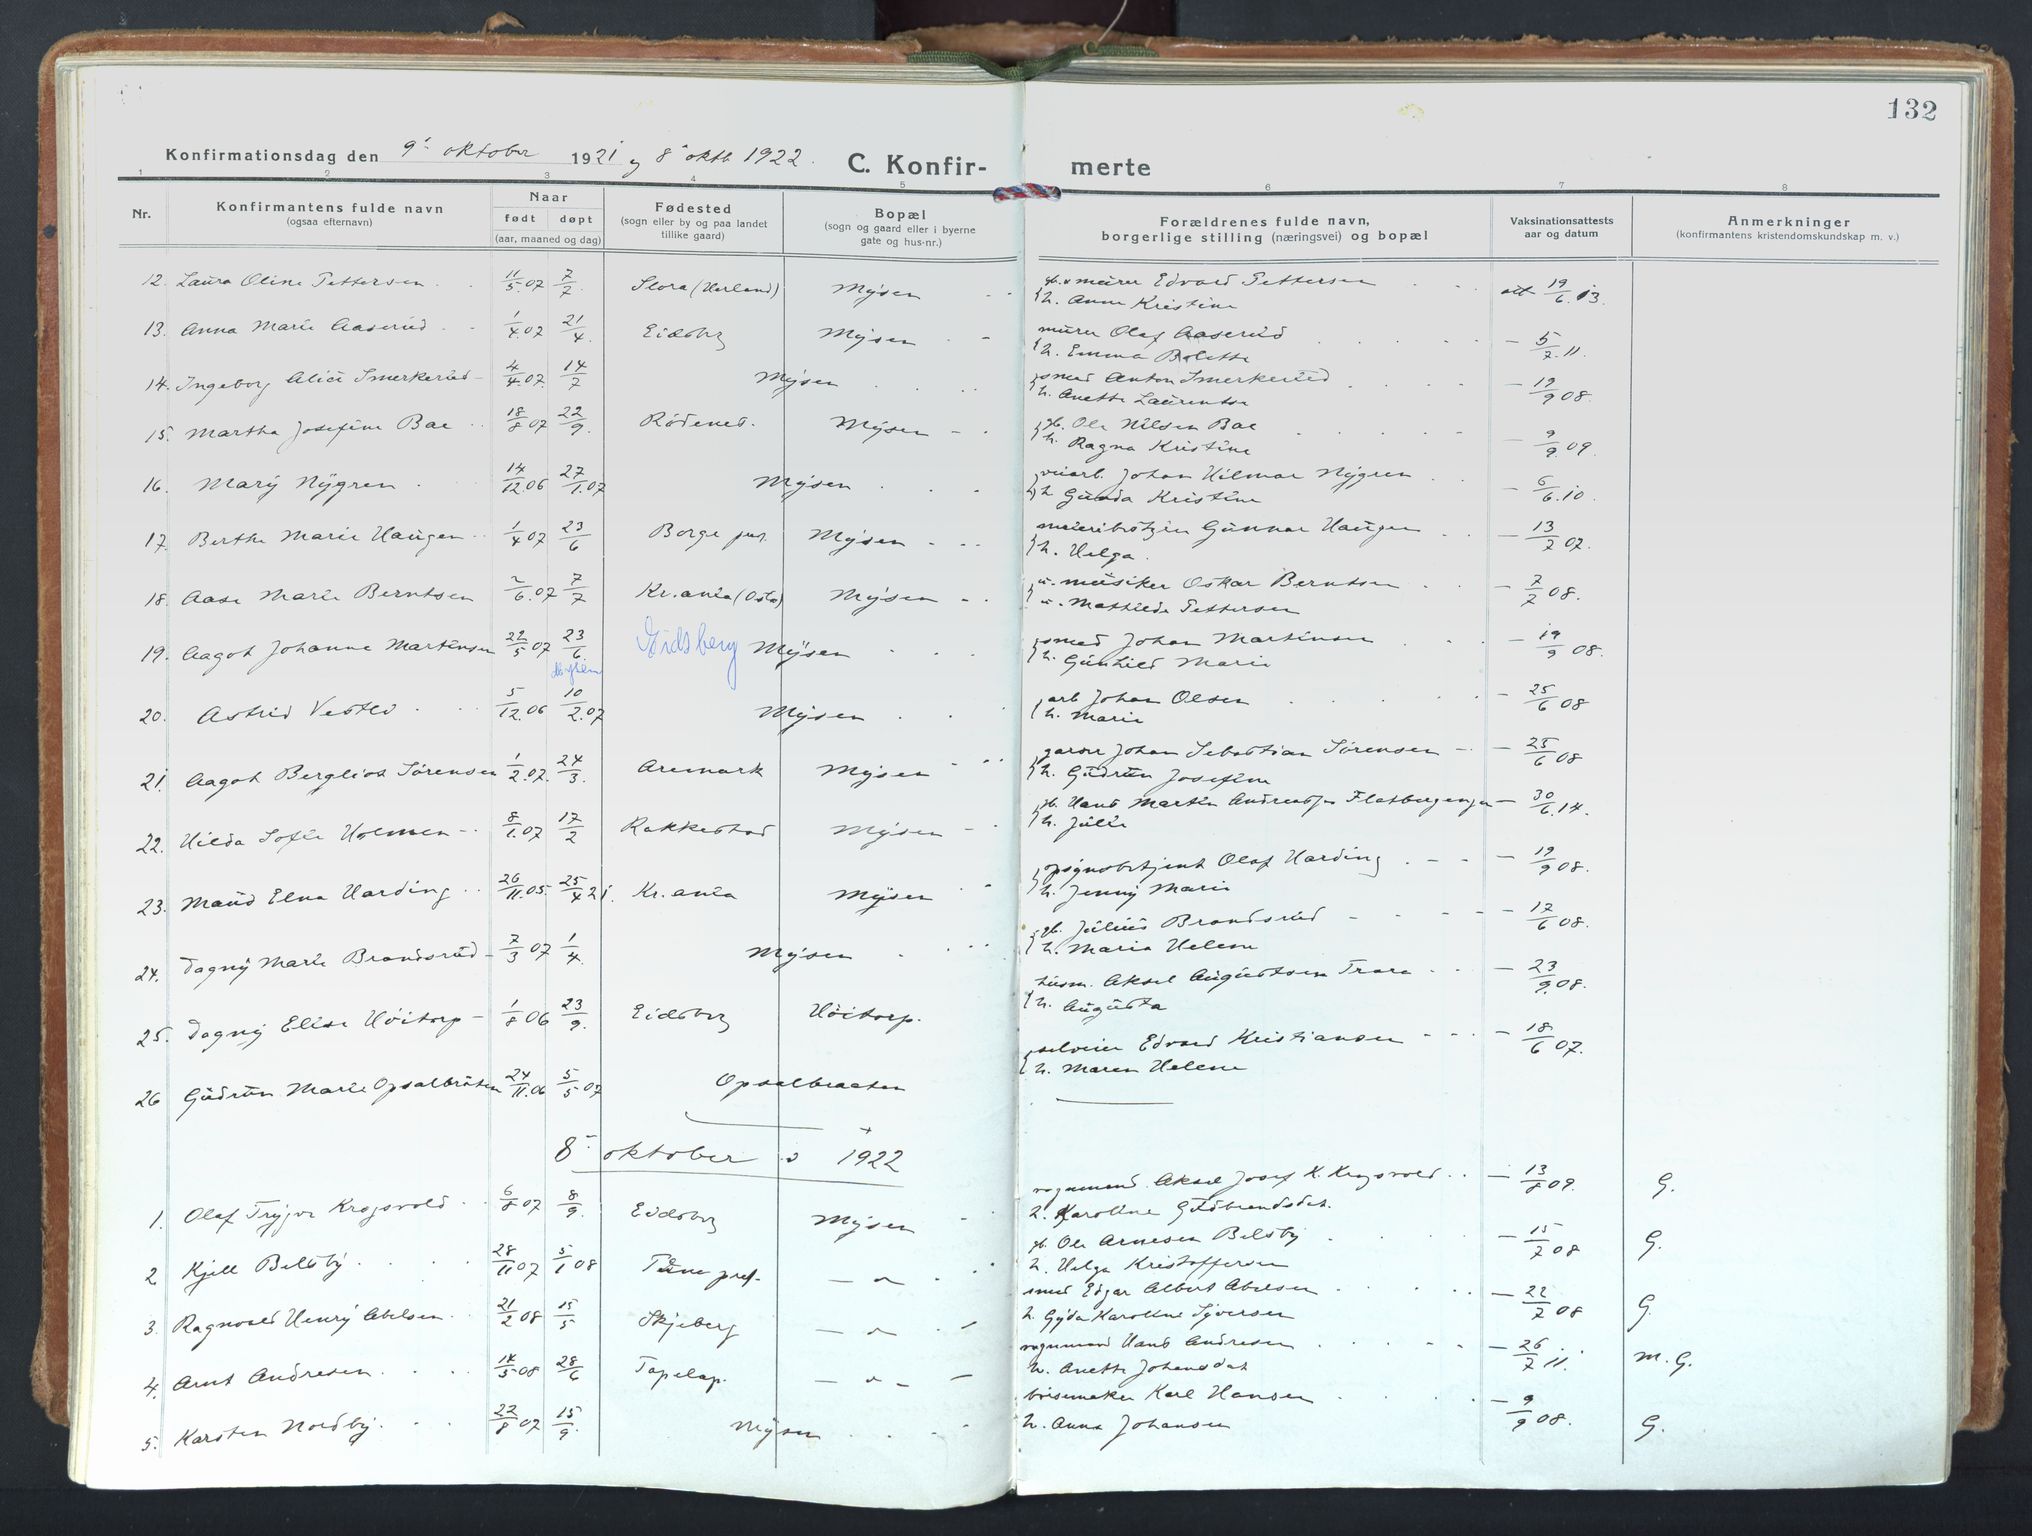 132
Konfirmationsdag den 9' oktober 1921 og 8' oktb. 1922. C. Konfir-
merte
1 2 3 4 5 6 7 8
Nr. Konfirmantens fulde navn (ogsaa efternavn) Naar født døpt (aar, maaned og dag) Fødested (sogn eller by og paa landet tillike gaard) Bopæl (sogn og gaard eller i byerne gate og hus-nr.) Forældrenes fulde navn, borgerlige stilling (næringsvei) og bopæl Vaksinationsattests aar og datum Anmerkninger (konfirmantens kristendomskundskap m. v.)
12. Laura Oline Pettersen 11/5.07 7/7. Slora (Urland) Mysen murer Edvard Pettersen att 19/6.13.
h. Anne Kristine
13. Anna Marie Aaserud 1/4.07 21/4. Eidsbg Mysen murer Olaf Aaserud - 5/7.11.
h. Emma Bolette
14. Ingeborg Alice Smerkerud 4/4.07 14/7 Mysen smed Anton Smerkerud - 19/9 08.
h. Anette Laurentse
15. Martha Josefine Bae 18/8 07 22/9. Rødenes. Mysen gb. Ole Nilsen Bae - 9/9. 09.
h. Ragna Kristine
16. Mary Nygren 14/12.06 27/1.07 Mysen veiarb. Johan Hilmar Nygren - 6/6.10.
h. Gunda Kristine
17. Berthe Marie Haugen 1/4 07 23/6 Borge pr. Mysen Gunnar Haugen - 13/7 07.
h. Helga.
18. Aase Marie Berntsen 2/6.07 7/7 Kr.ania (Oslo) Mysen u. musiker Oskar Berntsen - 7/7 08.
u. Mathilde Pettersen
19. Aagot Johanne Martinsen 22/5 07 23/6. Eidsberg Mysen smed Johan Martinsen - 19/9 08.
h. Gunhild Marie
Mysen
20. Astrid Vestlo 5/12.06 10/2.07 Mysen arb Johan Olsen - 25/6 08
h. Marie
21. Aagot Bergliot Sørensen 1/2.07. 24/3. Aremark Mysen garver Johan Sebastian Sørensen - 25/6 08
h. Gudrun Josefine
22. Hilda Sofie Holmen 8/1.07 17/2 Rakkestad Mysen gb. Hans Martin - 30/6.14.
h. Julie
23. Maud Elna Harding 26/11.05. 25/4 21. Kr.ania Mysen opsynsbetjent Olaf Harding - 19/9 08.
h. Jenny Marie
24. Dagny Marie Brandsrud 7/3 07 1/4. Mysen gb. Julius Brandsrud - 17/6 08.
h. Maria Helene
25. Dagny Elise Høitorp 1/8 06 23/9. Eidsbg Høitorp. husm. Aksel Augustsen Trara - 23/9.08.
h. Augusta
26 Gudrun Marie Opsalbråten 24/11.06 5/5 07 Opsalbraaten selveier Edvard Kristiansen - 18/6 07.
h. Maren Helene
8' oktober 1922
1. Olaf Trygve Krogsvold 6/8 07 8/9. Eidsbg Mysen vognmand Aksel Josef K. Krogsvold - 13/8 09. G.
h. Karoline Gudbrandsdat.
2 Kjell Belsby 28/11 07 5/1 08 Tune prest. - " - gb. Ole Arnesen Belsby - 15/7 08 G.
h. Helga Kristoffersen
3. Ragnvald Henry Abelsen 21/2 08 15/5 Skjeberg - " - smed Edgar Albert Abelsen - 22/7 08 G.
h. Gyda Karoline Syversen
4. Arnt Andresen 14/5 08 28/6 - " - vognmand Hans Andresen - 26/7 11. M. G.
h. Anette Johansdat
5. Karsten Nordby. 22/8 07 15/9. Mysen Karl Hansen - 9/9 08. G.
h. Anna Johansen